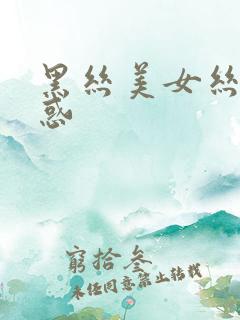 黑絲美女絲
惑
窮拾叁
未经同意禁止转载